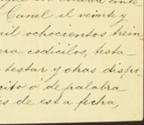 Canel el veinte y
mil ochocientos trein
era codicilos, testa-
testar y otras dispo
cito o de palabra
es de esta fecha,